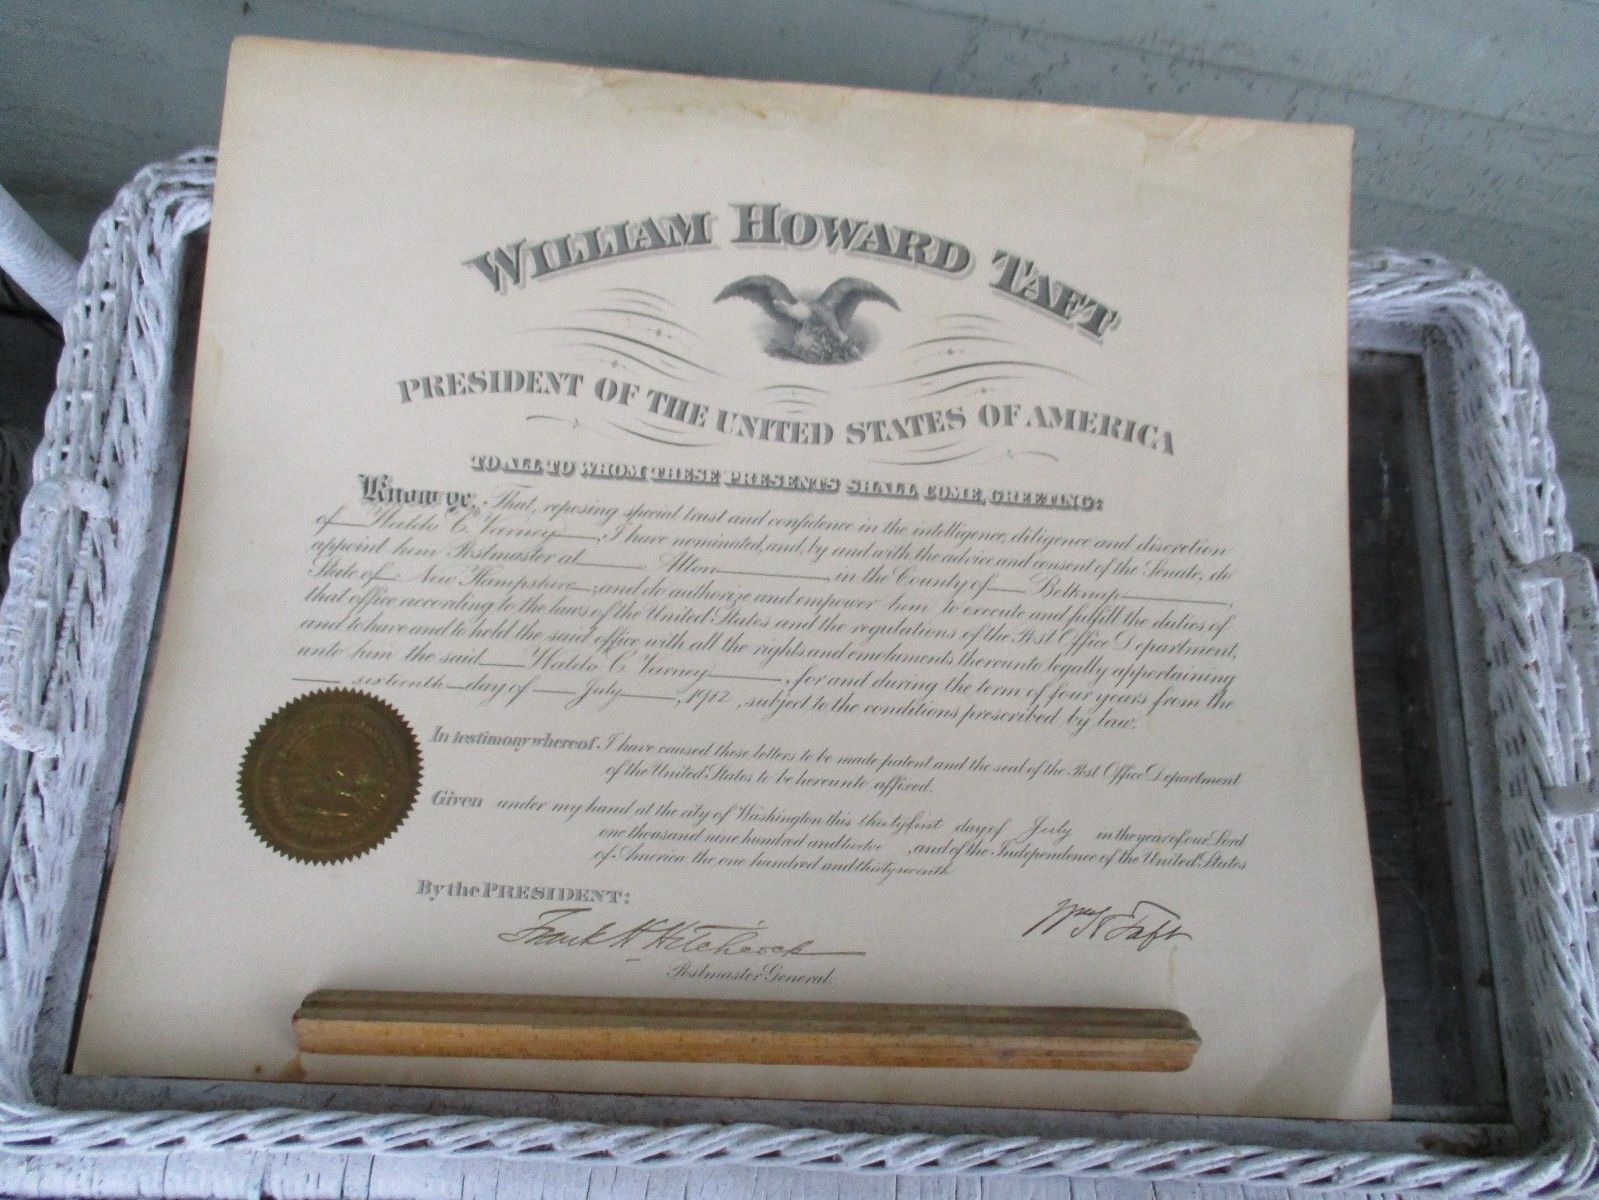 WILLIAM HOWARD TAFT
PRESIDENT OF THE UNITED STATES OF AMERICA
TO ALL TO WHOM THESE PRESENTS SHALL COME, GREETING:
Know ye, That, reposing special trust and confidence in the intelligence, diligence and discretion
of Waldo C. Varney, I have nominated, and, by and with the advice and consent of the Senate, do
appoint him Postmaster at Alton, in the County of Belknap,
State of New Hampshire, and do authorize and empower him to execute and fulfill the duties of
that office according to the laws of the United States and the regulations of the Post Office Department,
and to have and to hold the said office with all the rights and emoluments thereunto legally appertaining
unto him the said Waldo C. Varney, for and during the term of four years from the
sixteenth day of July, 1912, subject to the conditions prescribed by law.
In testimony whereof I have caused these letters to be made patent and the seal of the Post Office Department
of the United States to be hereunto affixed.
Given under my hand at the city of Washington this thirtyfirst day of July in the year of our Lord
one thousand nine hundred and twelve, and of the Independence of the United States
of America the one hundred and thirtyseventh
By the PRESIDENT:
Frank H. Hitchcock
Wm H Taft
Postmaster General.